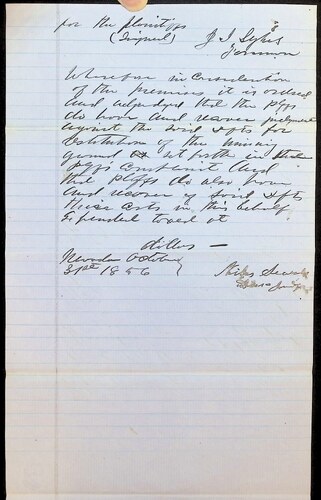 for the plaintiffs
(Signed) J I Sykes
Foreman
Wherefore in consideration
of the premises it is ordered
and adjudged that the plffs
do have and recover judgment
against the said dfts for
restitution of the mining
ground set forth in
plffs complaint and
that plffs do also have
and recover of said dfts
their costs in this behalf
Expended taxed at
dollars —
Nevada October
31st 1856
Niles Searls